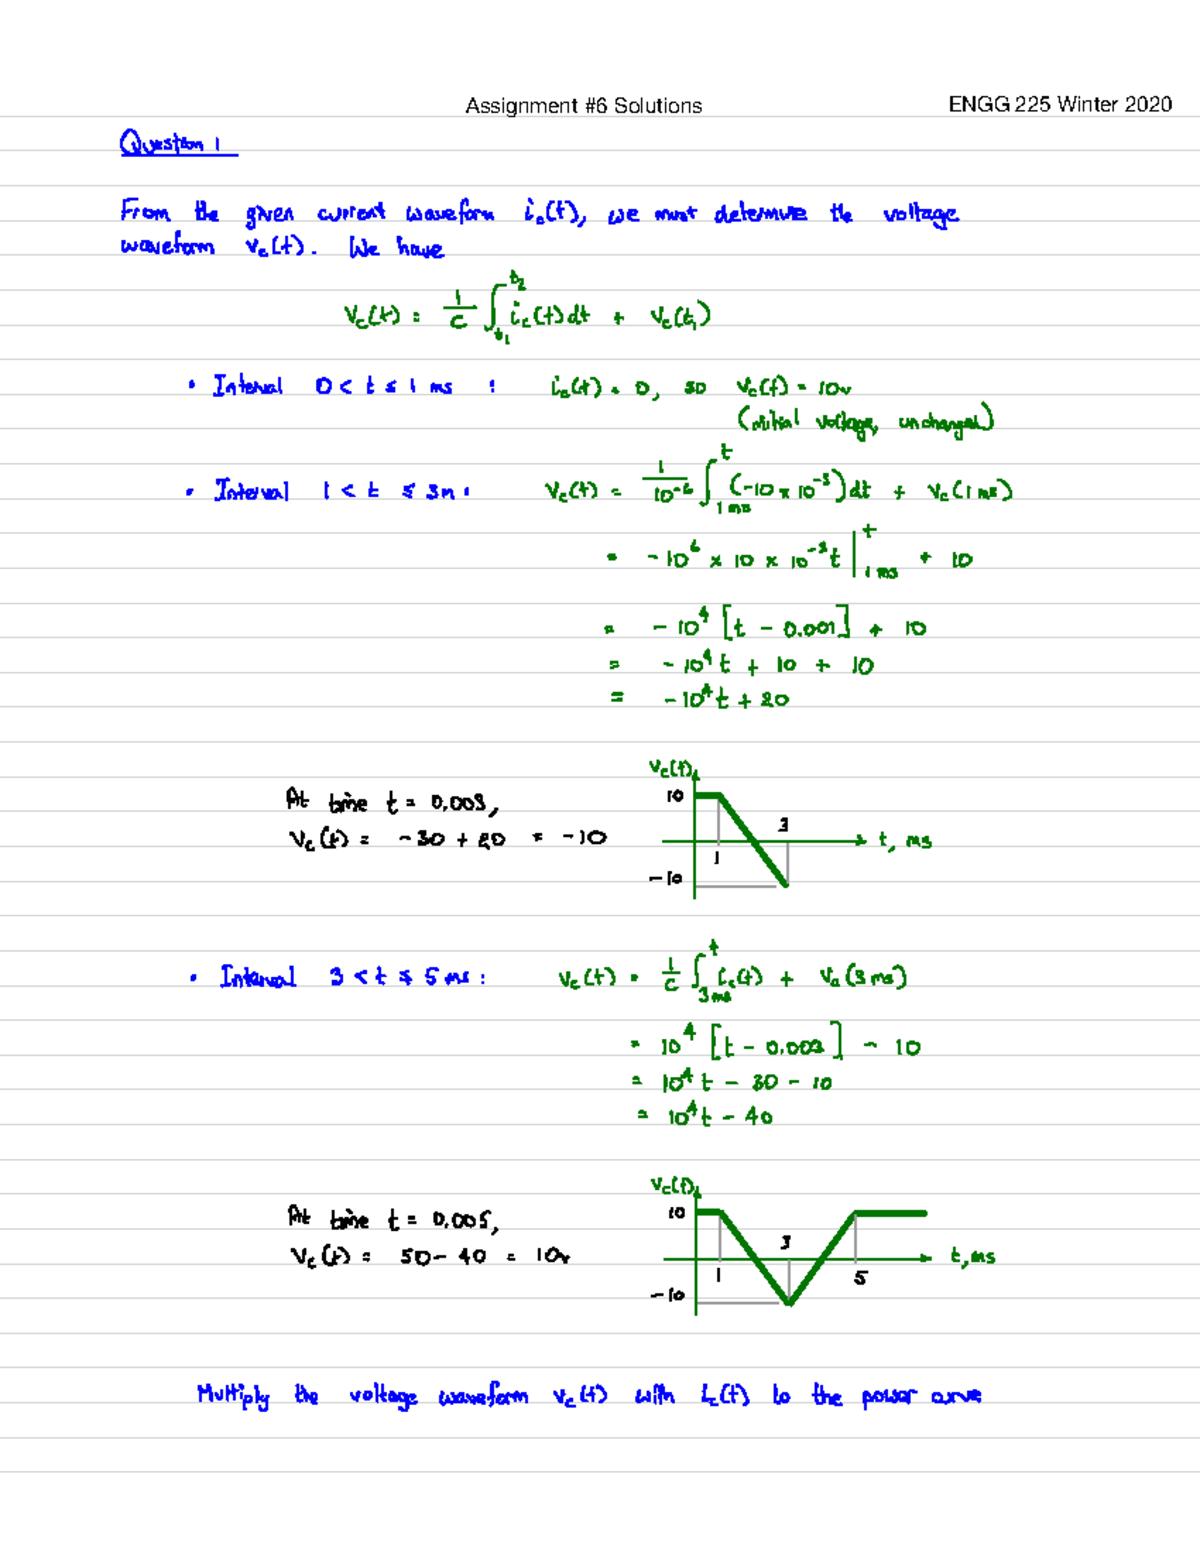 Assignment #6 Solutions
ENGG 225 Winter 2020
Question 1
From the given current waveform ic(t), we must determine the voltage
waveform vc(t). We have
Vc(t) = 1/C ∫_{t1}^{t2} ic(t)dt + Vc(t1)
• Interval 0 < t ≤ 1 ms : ic(t) = 0, so Vc(t) = 10v
(initial voltage, unchanged)
• Interval 1 < t ≤ 3m : Vc(t) = 1/10^-6 ∫_{1ms}^{t} (-10 x 10^-3)dt + Vc(1ms)
= -10^6 x 10 x 10^-3 t |_{1ms}^{t} + 10
= -10^4 [t - 0.001] + 10
= -10^4 t + 10 + 10
= -10^4 t + 20
At time t = 0.003,
Vc(t) = -30 + 20 = -10
Vc(t)
10
3
t, ms
1
-10
• Interval 3 < t ≤ 5 ms : Vc(t) = 1/C ∫_{3ms}^{t} ic(t) + Vc(3ms)
= 10^4 [t - 0.003] - 10
= 10^4 t - 30 - 10
= 10^4 t - 40
At time t = 0.005,
Vc(t) = 50 - 40 = 10v
Vc(t)
10
3
t, ms
1
5
-10
Multiply the voltage waveform vc(t) with ic(t) to the power curve